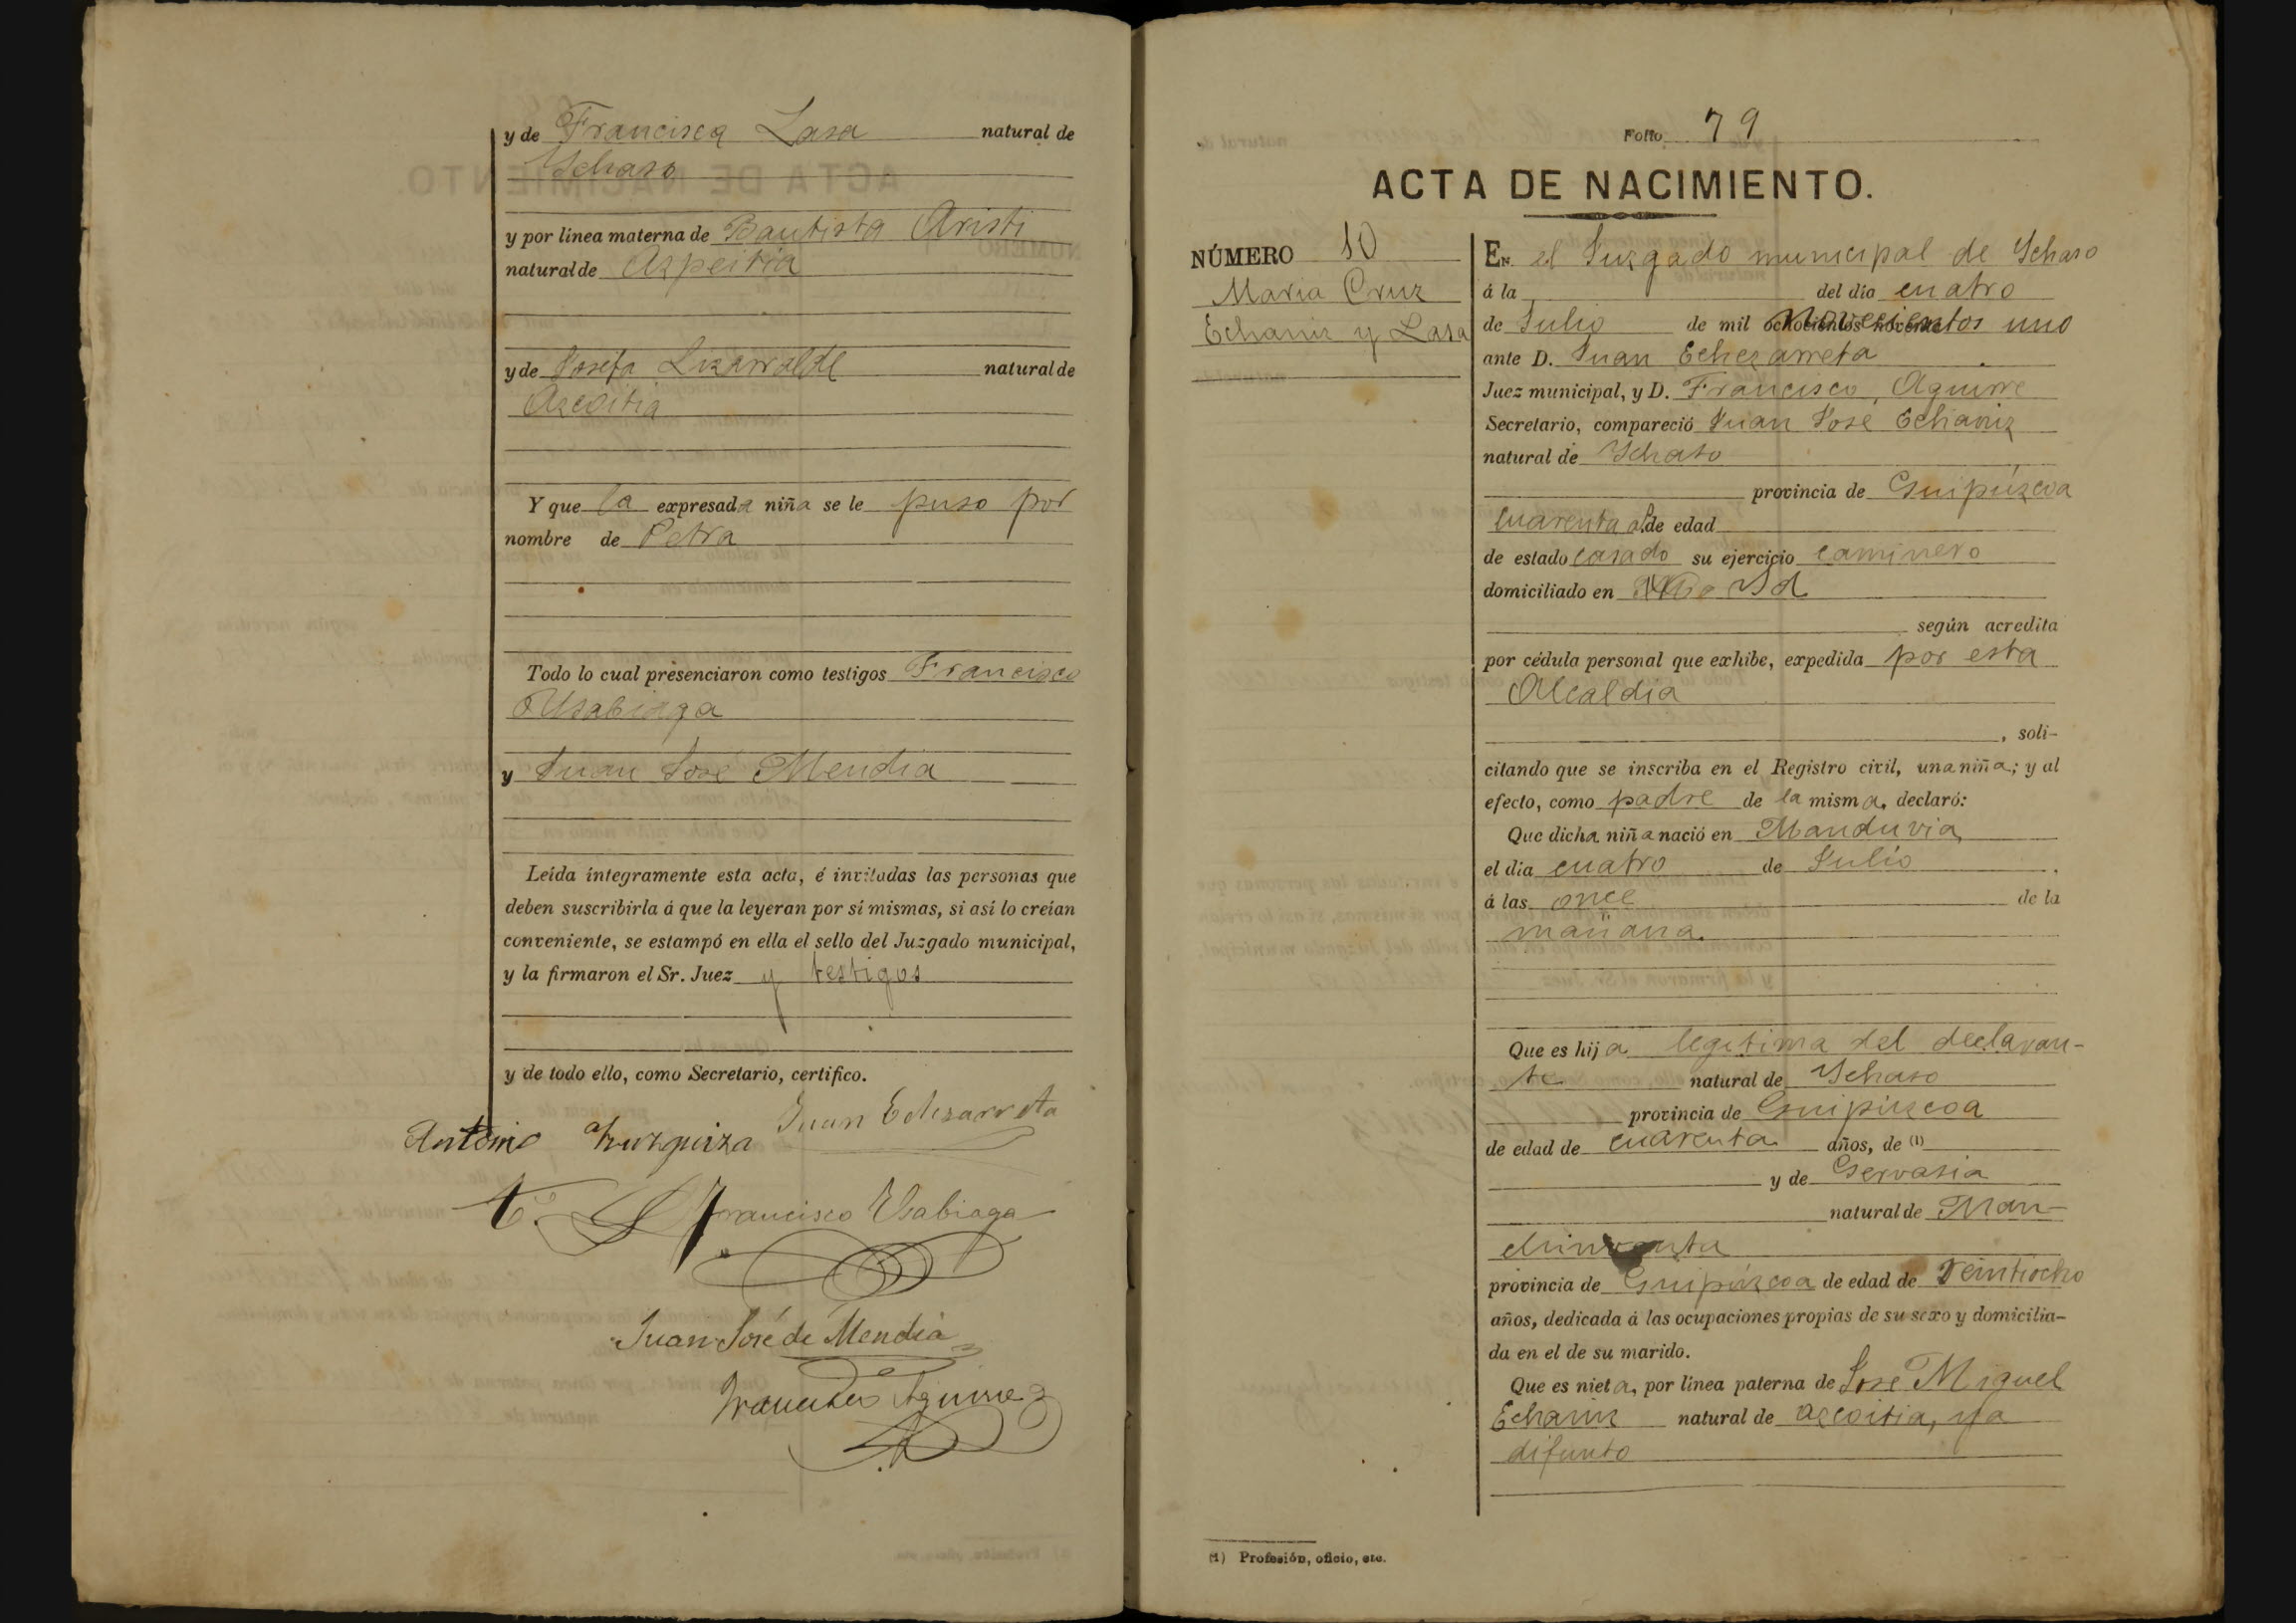 y de Francisca Lasa natural de
Ychaso
y por línea materna de Bautista Aristi
natural de Azpeitia
y de Josefa Lizarralde natural de
Azcoitia
Y que la expresada niña se le puso por
nombre de Petra
Todo lo cual presenciaron como testigos Francisco
Usabiaga
y Juan José Mendia
Leída íntegramente esta acta, é invitadas las personas que
deben suscribirla á que la leyeran por sí mismas, si así lo creían
conveniente, se estampó en ella el sello del Juzgado municipal,
y la firmaron el Sr. Juez y testigos
y de todo ello, como Secretario, certifico.
Juan Echezarreta
Antonio
Francisco Usabiaga
Juan José de Mendia
Francisco Aguirre
Folio 79
ACTA DE NACIMIENTO.
NÚMERO 10
Maria Cruz
Echaniz y Lasa
EN el Juzgado municipal de Ychaso
á la del día cuatro
de Julio de mil ochocientos novecientos uno
ante D. Juan Echezarreta
Juez municipal, y D. Francisco Aguirre
Secretario, compareció Juan José Echaniz
natural de Ychaso
provincia de Guipúzcoa
cuarenta a. de edad
de estado casado su ejercicio caminero
domiciliado en Yd
según acredita
por cédula personal que exhibe, expedida por esta
Alcaldía
, soli-
citando que se inscriba en el Registro civil, una niña; y al
efecto, como padre de la misma, declaró:
Que dicha niña nació en Manduvia
el día cuatro de Julio
á las once de la
mañana.
Que es hija legitima del declaran-
te natural de Ychaso
provincia de Guipúzcoa
de edad de cuarenta años, de (1)
y de Gervasia
natural de Man-
provincia de Guipúzcoa de edad de veintiocho
años, dedicada á las ocupaciones propias de su sexo y domicilia-
da en el de su marido.
Que es nieta, por línea paterna de José Miguel
Echaniz natural de Azcoitia, ya
difunto
(1) Profesión, oficio, etc.